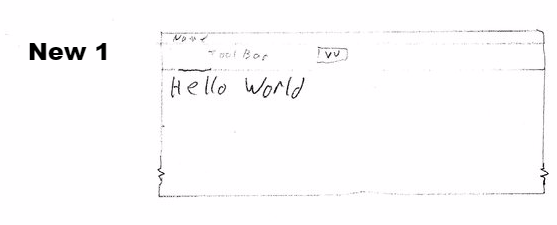 New 1
Name
Tool Bar
VV
Hello World